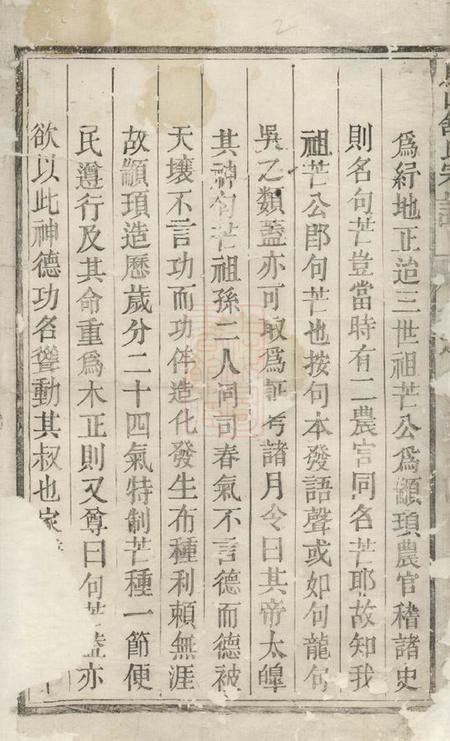 爲紆地正迨三世祖芒公爲顓頊農官稽諸史
則名句芒豈當時有二農官同名芒耶故知我
祖芒公卽句芒也按句本發語聲或如句龍句
吳之類蓋亦可取爲証考諸月令曰其帝太皥
其神句芒祖孫二人同司春氣不言德而德被
天壤不言功而功侔造化發生布種利賴無涯
故顓頊造曆歲分二十四氣特制芒種一節使
民遵行及其命重爲木正則又尊曰句芒蓋亦
欲以此神德功名聳動其叔也